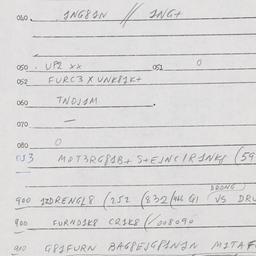 040. JNG81N // JNG+
050. UP2 XX 051 0
052 FURC3 X UNK81K+
060 TNDJ1M.
070 —
080. 0
013 MOT3RG81B+ S+EJNC1R1NK8 (59
DRONG
900 (252 (832/ G1 VS DRU
900 FURND1K8 CR1K8 (/008090
910 G81FURN BAG8EJG81N1N M1TAF